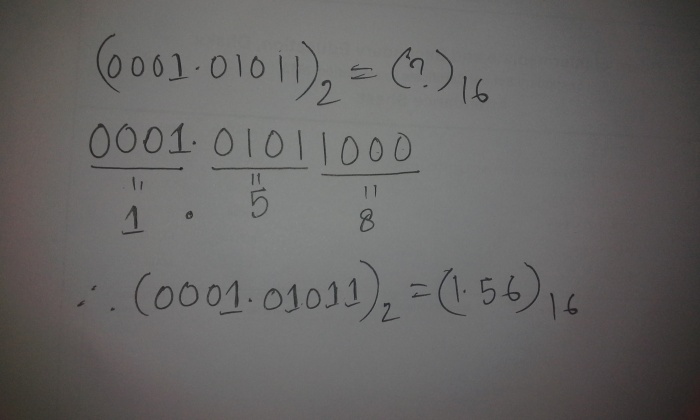 (0001.01011)2 = (?)16
0001. 0101 1000
" " "
1 . 5 8
∴ (0001.01011)2 = (1.56)16